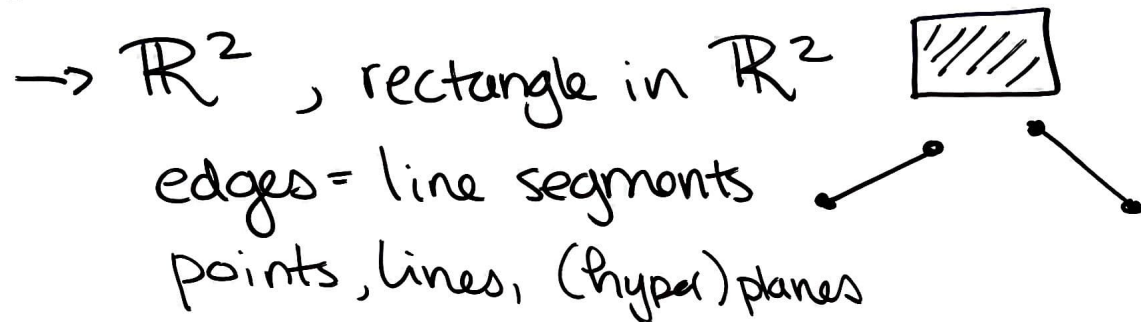 → ℝ², rectangle in ℝ²
edges = line segments
points, lines, (hyper)planes